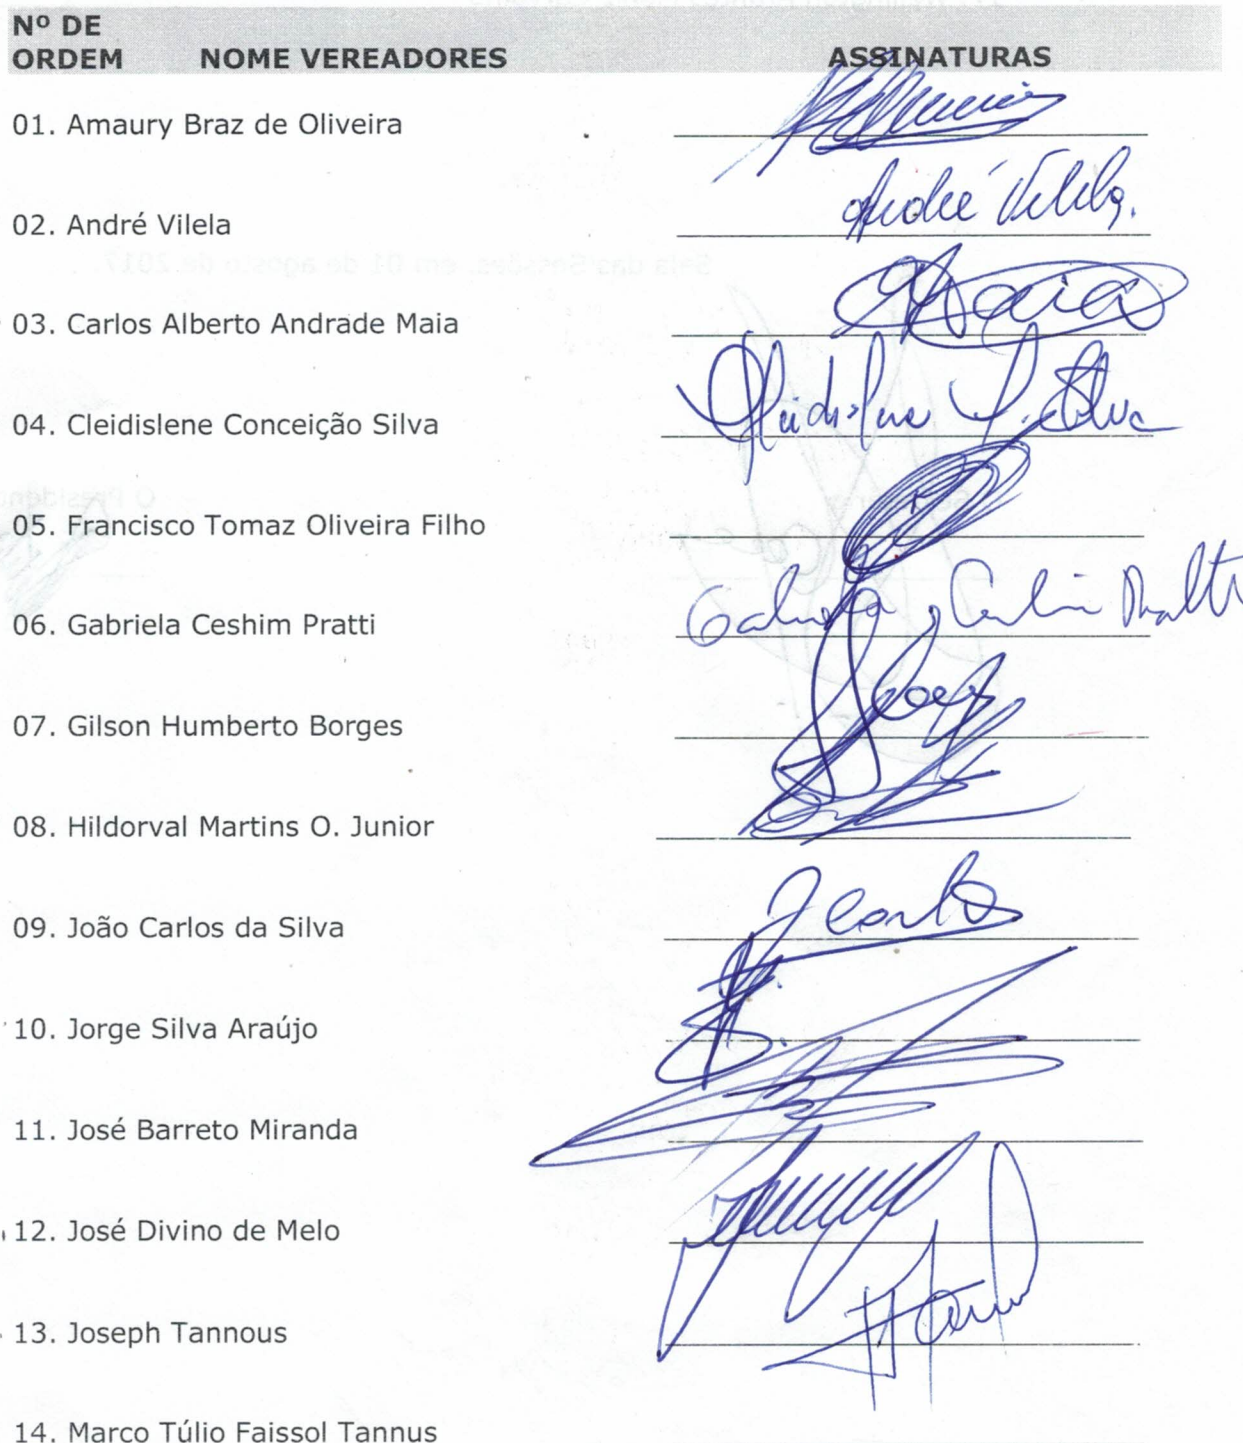 Nº DE
ORDEM NOME VEREADORES ASSINATURAS
01. Amaury Braz de Oliveira
02. André Vilela André Vilela.
03. Carlos Alberto Andrade Maia Maia
04. Cleidislene Conceição Silva
05. Francisco Tomaz Oliveira Filho
06. Gabriela Ceshim Pratti
07. Gilson Humberto Borges
08. Hildorval Martins O. Junior
09. João Carlos da Silva JCarlos
10. Jorge Silva Araújo
11. José Barreto Miranda
12. José Divino de Melo
13. Joseph Tannous
14. Marco Túlio Faissol Tannus